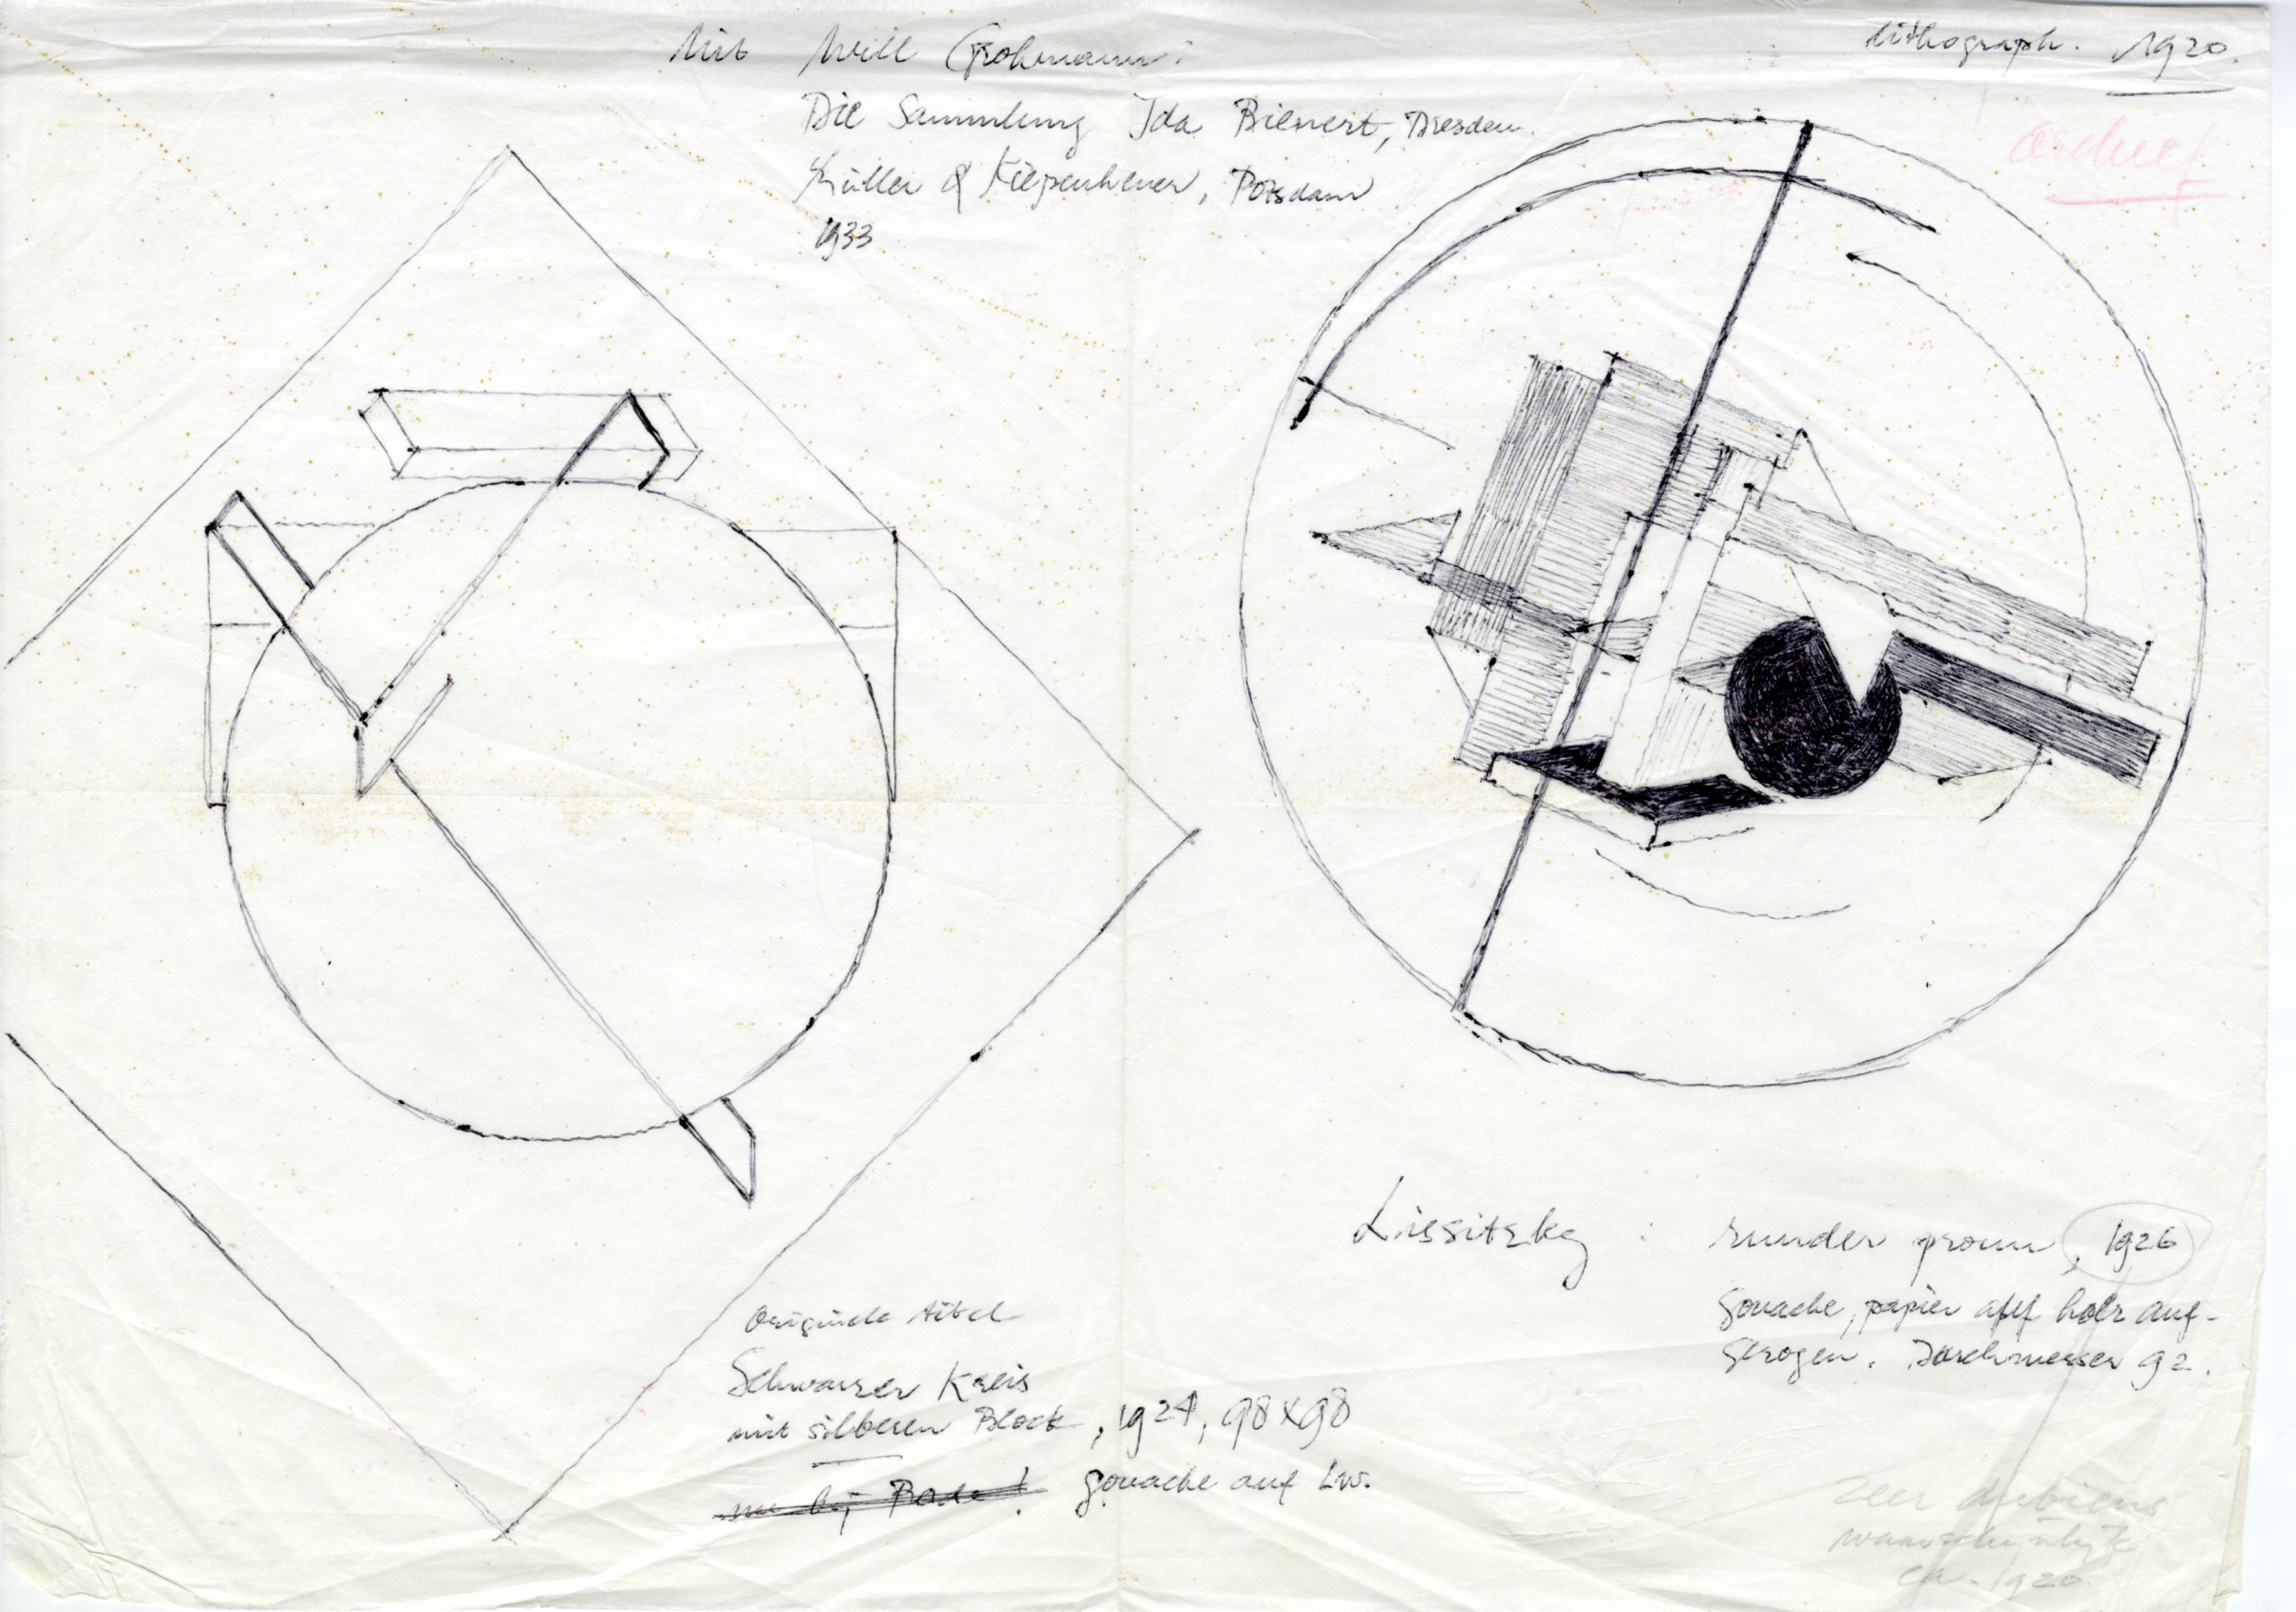 Uit Will Grohmann:
Die Sammlung Ida Bienert, Dresden.
Müller & Kiepenheuer, Potsdam
1933
Lithograph. 1920.
archief
Lissitzky : runder proun, 1926
Gouache, papier auf holz auf-
gezogen. Durchmesser 92.
Originele titel
Schwarzer Kreis
mit silberen Block, 1924, 98x98
nu bij Bode! gouache auf Lw.
Zeer dubieus
waarschijnlijk
ca. 1920